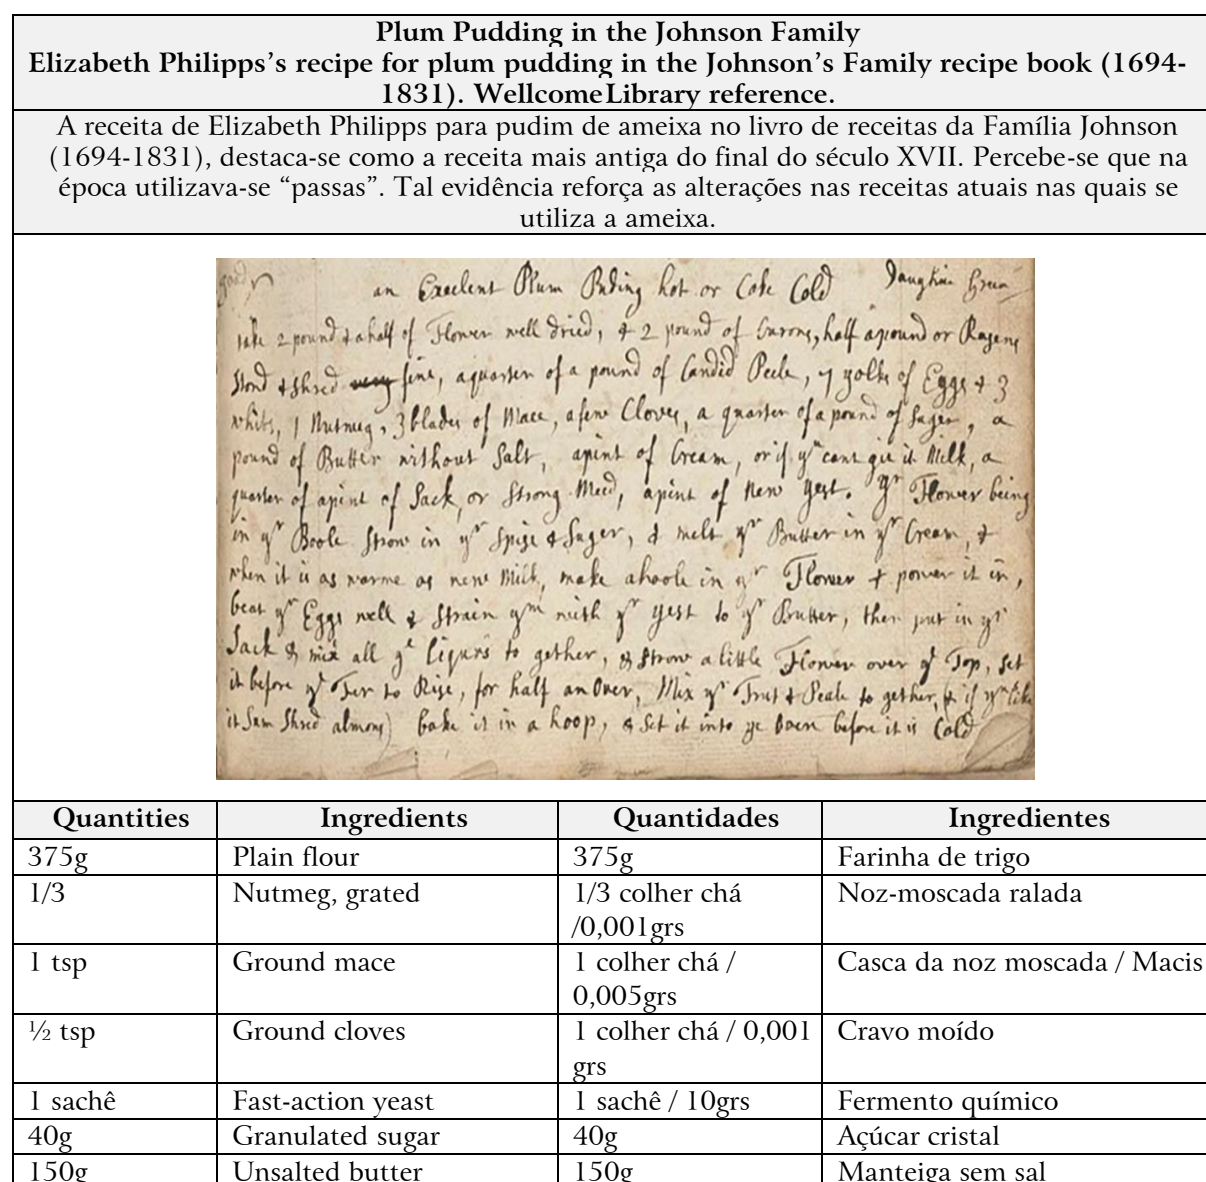 Plum Pudding in the Johnson Family
Elizabeth Philipps’s recipe for plum pudding in the Johnson’s Family recipe book (1694-
1831). Wellcome Library reference.
A receita de Elizabeth Philipps para pudim de ameixa no livro de receitas da Família Johnson
(1694-1831), destaca-se como a receita mais antiga do final do século XVII. Percebe-se que na
época utilizava-se “passas”. Tal evidência reforça as alterações nas receitas atuais nas quais se
utiliza a ameixa.
an Excelent Plum Puding hot or Cake Cold
take 2 pound & a half of Flower well dried, & 2 pound of Curons, half a pound or Rasens
stond & shred very fine, a quarter of a pound of Candid Peele, 7 yolks of Eggs & 3
whits, 1 Nutmeg, 3 blades of Mace, a few Cloves, a quarter of a pound of Suger, a
pound of Butter without Salt, a pint of Cream, or if yu cant gie it Milk, a
quarter of a pint of Sack, or Strong Meed, a pint of New yest. yr Flower being
in yr Boole strow in yr Spise & Suger, & melt yr Butter in yr Cream, &
when it is as warme as new Milk, make a hoole in yr Flower & power it in,
beat yr Eggs well & Strain ym with yr yest to yr Butter, then put in yr
Sack & mix all ye liqurs to gether, & strow a little Flower over ye Top, set
it before ye Fier to Rise, for half an Over, Mix yr Frut & Peale to gether, & if yu like
it Sum Shred almons) bake it in a hoop, & Set it into ye oven before it is Cold
Quantities Ingredients Quantidades Ingredientes
375g Plain flour 375g Farinha de trigo
1/3 Nutmeg, grated 1/3 colher chá Noz-moscada ralada
/0,001grs
1 tsp Ground mace 1 colher chá / Casca da noz moscada / Macis
0,005grs
½ tsp Ground cloves 1 colher chá / 0,001 Cravo moído
grs
1 sachê Fast-action yeast 1 sachê / 10grs Fermento químico
40g Granulated sugar 40g Açúcar cristal
150g Unsalted butter 150g Manteiga sem sal